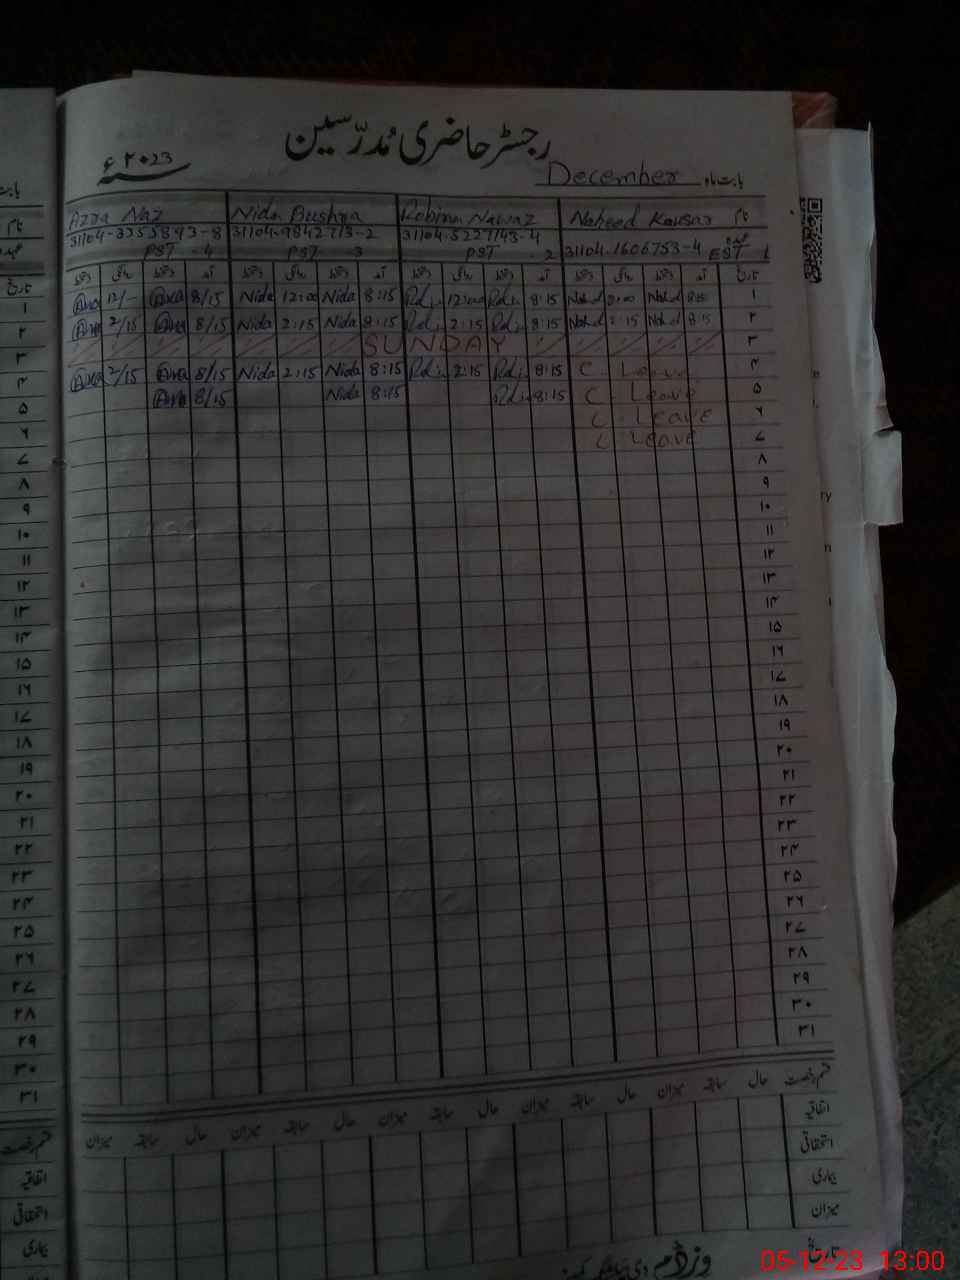 رجسٹر حاضری مُدرّسین
بابت ماہ December ۲۰23ء
نام Naheed Kausar Robina Nawaz Nida Bushra Azra Naz
عہدہ
31104-9842713-2 31104-5227143-4 31104-1606753-4
EST 1 PST - 2 PST - 3 PST - 4
تاریخ آمد دستخط روانگی دستخط آمد دستخط روانگی دستخط آمد دستخط روانگی دستخط آمد دستخط روانگی دستخط
۱ 8:15 12:00 Nida 8:15 Nida 12:00 8/15 12/-
۲ 8:15 2:15 8:15 2:15 Nida 8:15 Nida 2:15 8/15 2/15
۳ SUNDAY
۴ C. Leave 8:15 2:15 Nida 8:15 Nida 2:15 8/15 2/15
۵ C. Leave 8:15 Nida 8:15 8/15
۶ C. Leave
۷ C. Leave
۸
۹
۱۰
۱۱
۱۲
۱۳
۱۴
۱۵
۱۶
۱۷
۱۸
۱۹
۲۰
۲۱
۲۲
۲۳
۲۴
۲۵
۲۶
۲۷
۲۸
۲۹
۳۰
۳۱
قسم رخصت حال سابقہ میزان حال سابقہ میزان حال سابقہ میزان حال سابقہ میزان
اتفاقیہ
استحقاقی
بیماری
میزان
05-12-23 13:00